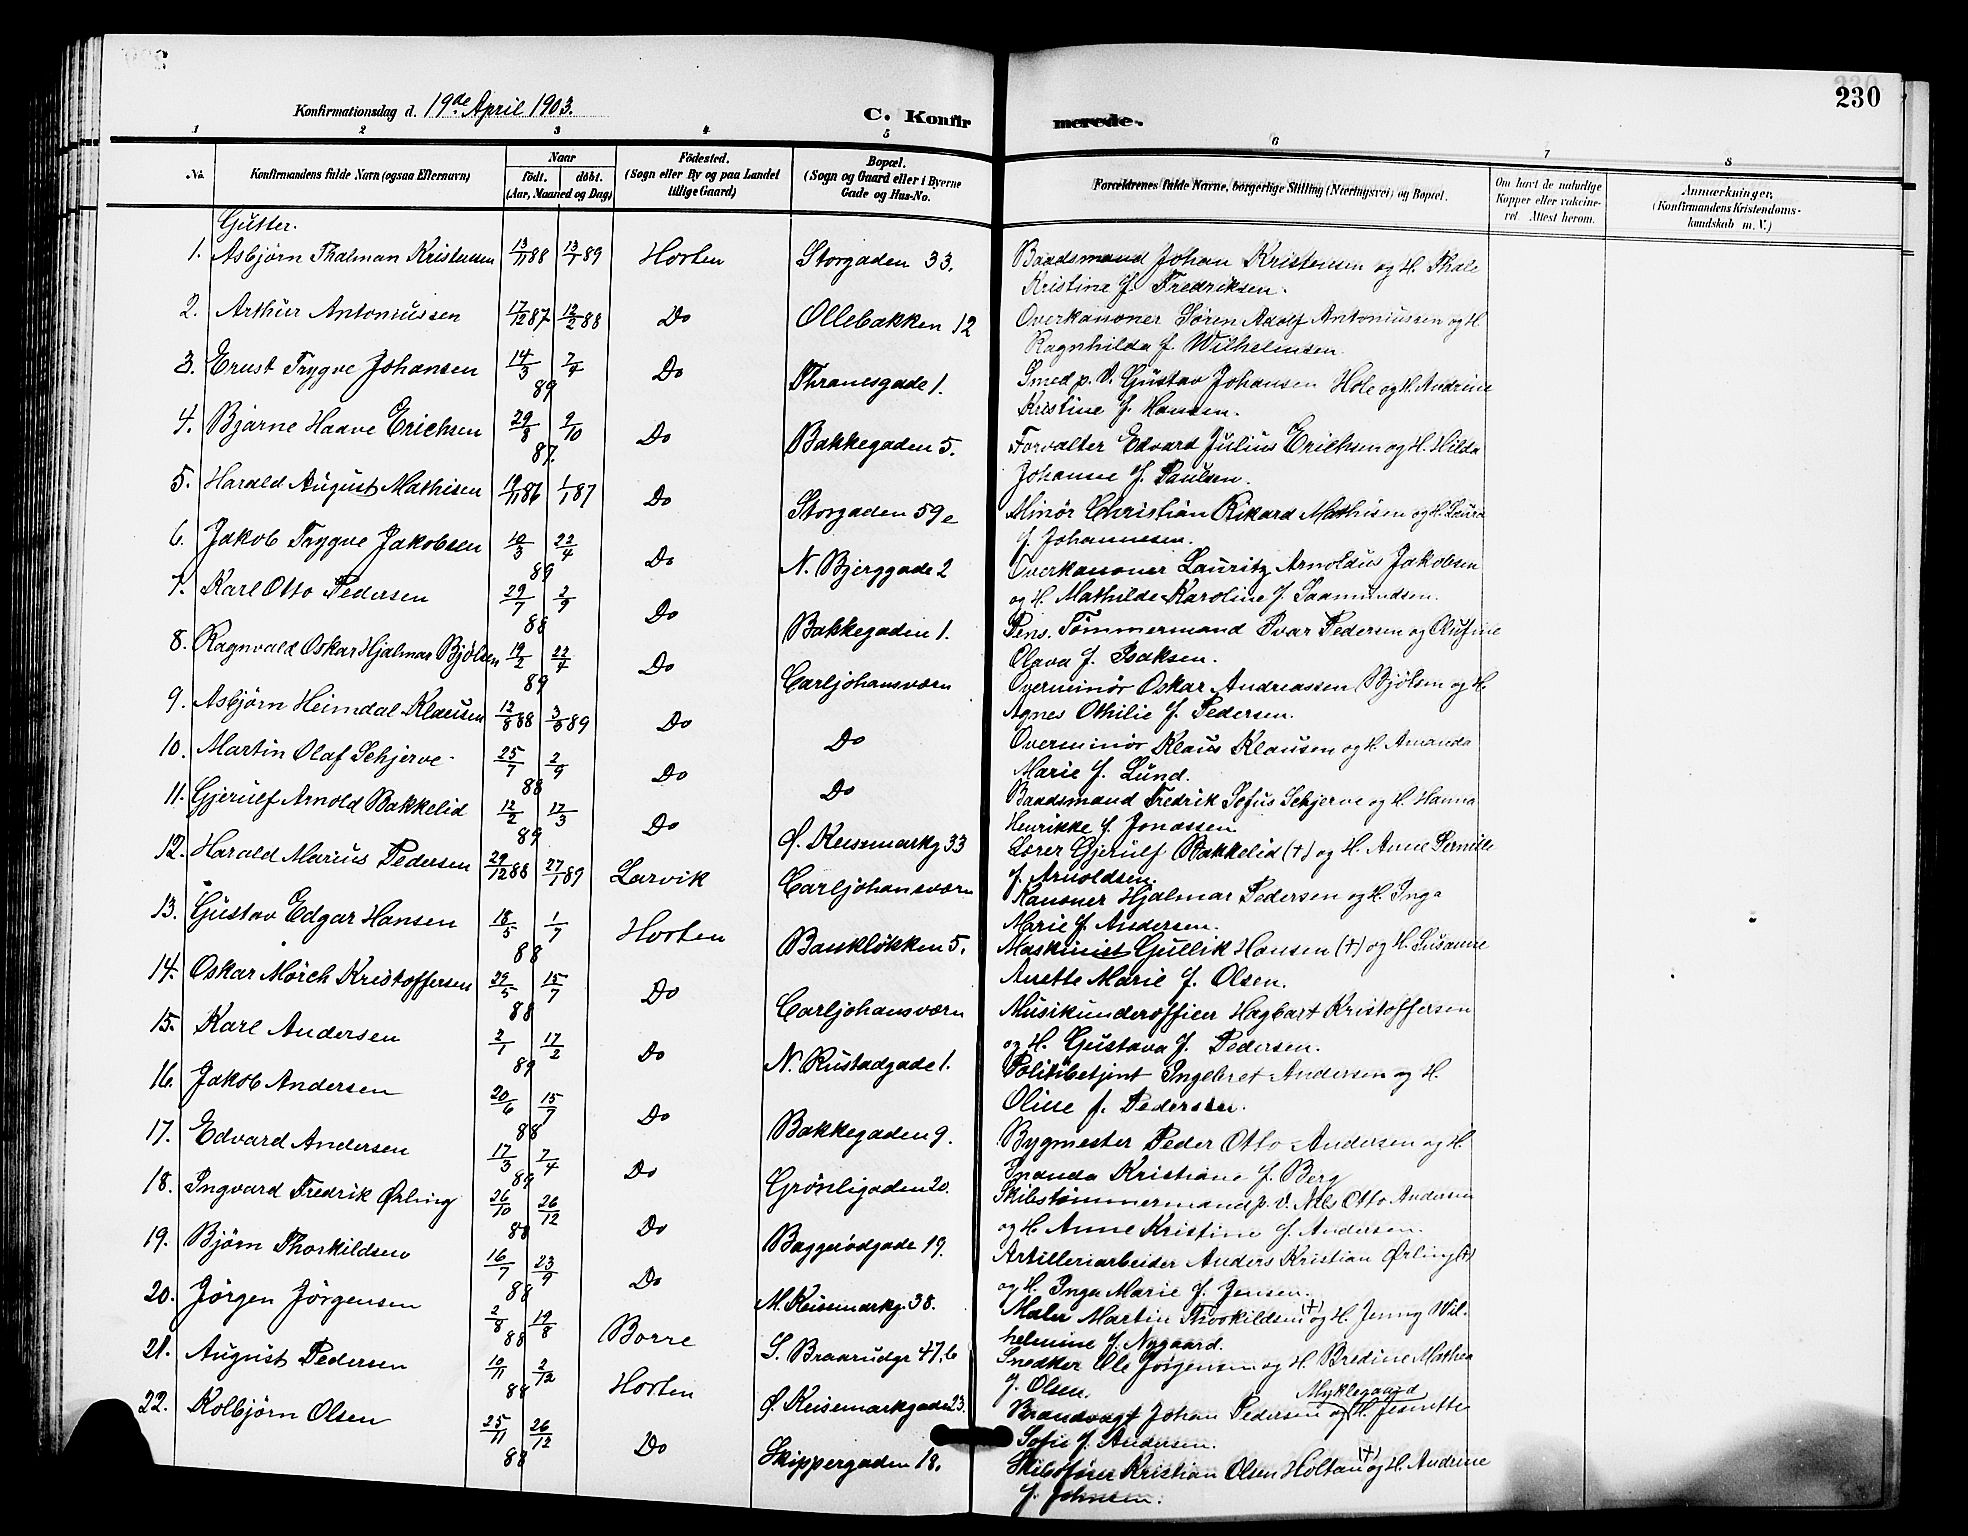 230
Konfirmationsdag d. 19de April 1903.
C. Konfirmerede.
1 2 3 4 5 6 7 8
No.
Konfirmandens fulde Navn (ogsaa Efternavn)
Naar
födt. döbt.
(Aar, Maaned og Dag)
Födested.
(Sogn eller By og paa Landet
tillige Gaard)
Bopæl.
(Sogn og Gaard eller i Byerne
Gade og Hus-No.
Forældrenes fulde Navne, borgerlige Stilling (Næringsvei) og Bopæl.
Om havt de naturlige
Kopper eller vakcine-
ret. Attest herom.
Anmærkninger,
(Konfirmandens Kristendoms-
kundskab m. V.)
Gutter.
1. Asbjørn Thalman Kristensen 13/11 88 13/1 89 Horten Storgaden 33. Baadsmand Johan Kristensen og H. Thale
Kristine f. Fredriksen.
2. Arthur Antoniussen 17/12 87 12/2 88 Do Ollebakken 12 Overkanoner Søren Adolf Antoniussen og H.
Ragnhilda f. Wilhelmsen.
3. Ernst Trygve Johansen 14/3 7/4 89 Do Thranesgade 1. Smed p. V. Gustav Johansen Hole og H. Andrine
Kristine f. Hansen.
4. Bjarne Haave Erichsen 29/8 9/10 87. Do Bakkegaden 5. Forvalter Edvard Julius Erichsen og H. Hilda
Johanne f. Paulsen.
5. Harald August Mathisen 19/11 86 1/1 87 Do Storgaden 59e Minör Christian Rikard Mathisen og H. Laura
f. Johannesen.
6. Jakob Trygve Jakobsen 10/3 22/4 89 Do N. Bjerggade 2 Overkanoner Lauritz Arnoldus Jakobsen
og H. Mathilde Karoline f. Saamundsen.
7. Karl Otto Pedersen 29/7 2/9 88 Do Bakkegaden 1. Pens. Tömmermand Ivar Pedersen og Olufine
Olava f. Isaksen.
8. Ragnvald Oskar Hjalmar Bjølsen 19/2 22/4 89 Do Carljohansværn Overminör Oskar Andreassen Bjölsen og H.
Agnes Othilie f. Pedersen.
9. Asbjørn Heimdal Klausen 12/8 88 3/3 89 Do Do Overminör Klaus Klausen og H. Amanda
Marie f. Lund.
10. Martin Olaf Schjerve 25/7 2/9 88 Do Do Baadsmand Fredrik Sofus Schjerve og H. Hanna
Henrikke f. Jonassen
11. Gjerulf Arnold Bakkelid 12/2 17/3 89 Do Ø. Keisemarkg 33 Lærer Gjerulf Bakkelid (+) og H. Anne Pernille
f. Arnoldsen.
12. Harald Marius Pedersen 29/12 88 27/1 89 Larvik Carljohansværn Kanoner Hjalmar Pedersen og H. Inga
Marie f. Andersen.
13. Gustav Edgar Hansen 18/5 1/7 88 Horten Bankløkken 5. Maskinist Gullik Hansen (+) og H. Susanne
Anette Marie f. Olsen.
14. Oskar Mörch Kristoffersen 29/5 15/7 88 Do Carljohansværn Musikunderofficer Hagbart Kristoffersen
og H. Gustava f. Pedersen.
15. Karl Andersen 2/1 17/2 89 Do N. Rustadgade 1. Politibetjent Ingebret Andersen og H.
Oline f. Pedersen.
16. Jakob Andersen 20/6 15/7 88 Do Bakkegaden 9. Bygmester Peder Otto Andersen og H.
Enanda Kristiane f. Berg
17. Edvard Andersen 17/3 7/4 89 Do Grönligaden 20. Skibstømmermand p. V. Nils Otto Andersen
og H. Anne Kristine f. Andersen.
18. Ingvard Fredrik Ørling 26/10 26/12 88 Do Baggerödgade 19. Artilleriarbeider Anders Kristian Ørling (+)
og H. Inga Marie f. Jensen.
19. Bjørn Thorkildsen 16/7 23/9 88 Do M. Keisemarkg. 38. Maler Martin Thorkildsen (+) og H. Jenny Wil-
helmine f. Nygaard.
20. Jörgen Jörgensen 2/8 19/8 88 Borre S. Braarudgt 47,6 Snedker Ole Jørgensen og H Bredine Mathea
f. Olsen.
21. August Pedersen 10/11 2/12 88 Horten Ø. Keisemarkgade 23. Brandvagt Johan Pedersen Myklegaard og H. Jesnette
Sofie f. Andersen.
22. Kolbjørn Olsen 25/11 26/12 88 Do Skippergaden 18. Skibsfører Kristian Olsen Holtan (+) og H. Andrine
f. Johnsen.